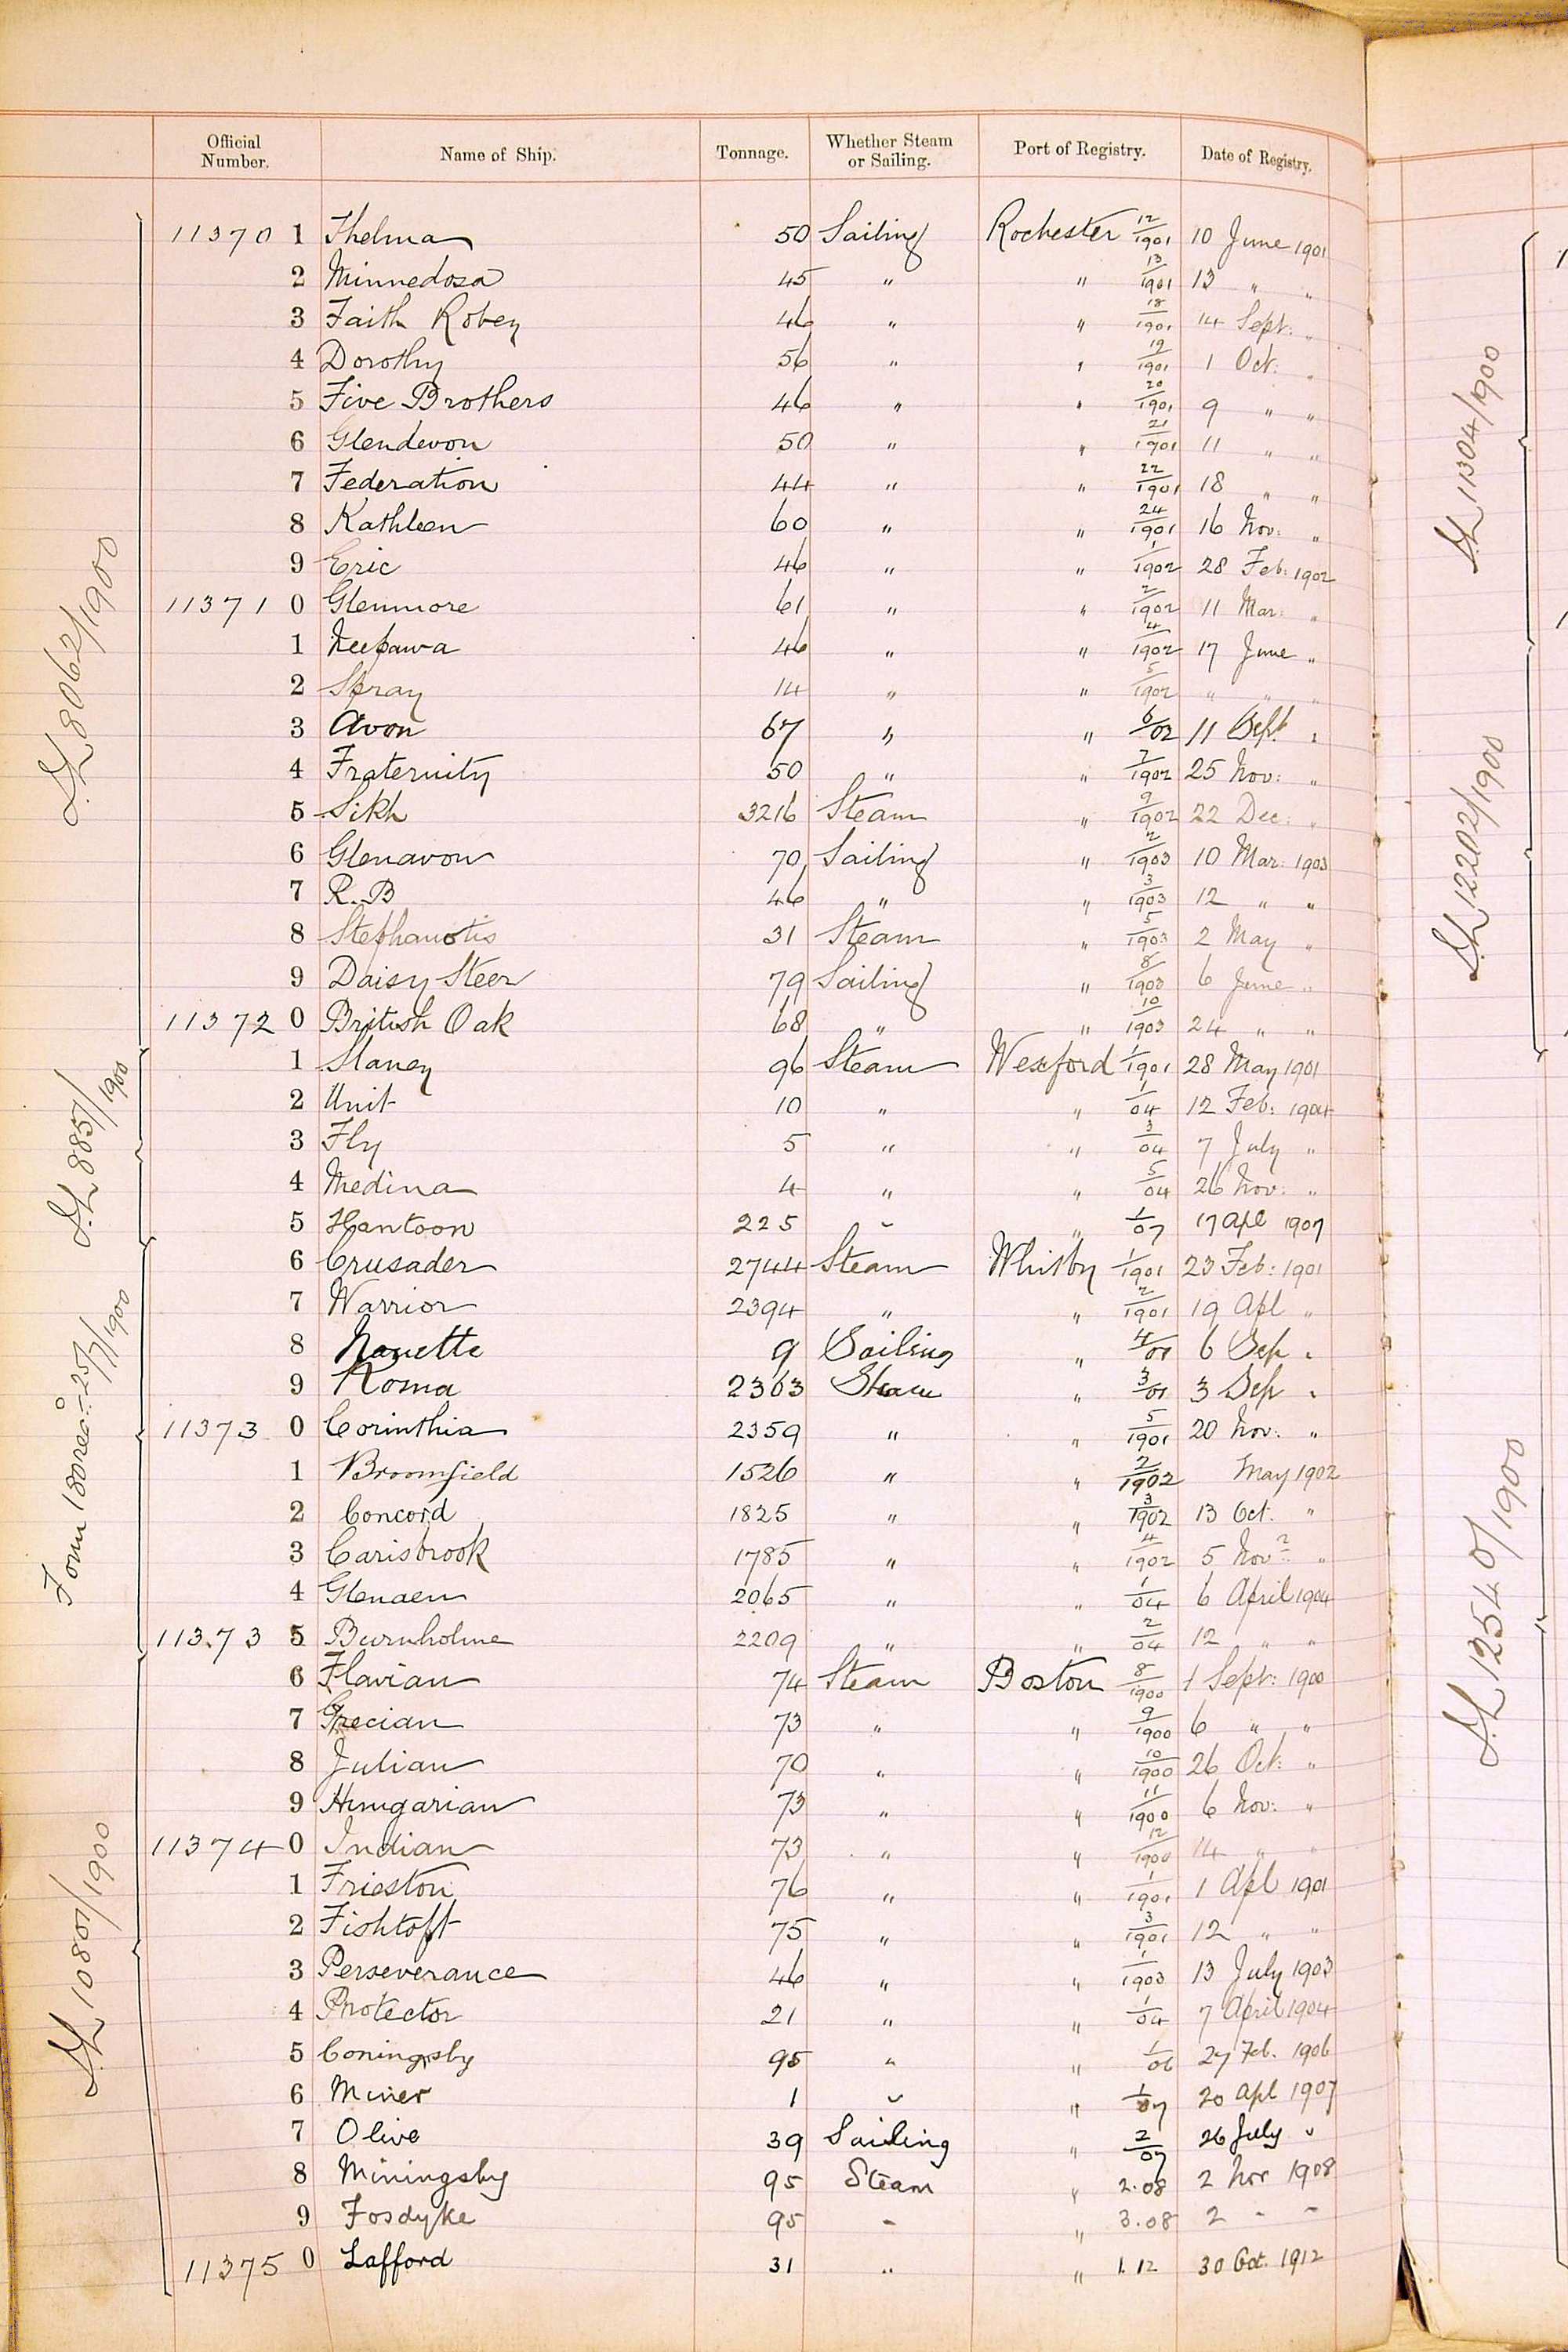 Official Number. Name of Ship. Tonnage. Whether Steam or Sailing. Port of Registry. Date of Registry.
11370 1 Thelma 50 Sailing Rochester 12/1901 10 June 1901
2 Minnedosa 45 " " 13/1901 13 " "
3 Faith Robey 46 " " 18/1901 14 Sept: "
4 Dorothy 56 " " 19/1901 1 Oct: "
5 Five Brothers 46 " " 20/1901 9 " "
6 Glendevon 50 " " 21/1901 11 " "
7 Federation 44 " " 22/1901 18 " "
8 Kathleen 60 " " 24/1901 16 Nov: "
9 Eric 46 " " 1/1902 28 Feb: 1902
11371 0 Glenmore 61 " " 2/1902 11 Mar: "
1 Neepawa 46 " " 4/1902 17 June "
2 Spray 14 " " 5/1902 " " "
3 Avon 67 " " 6/02 11 Sept "
4 Fraternity 50 " " 7/1902 25 Nov: "
5 Sikh 3216 Steam " 9/1902 22 Dec: "
6 Glenavon 70 Sailing " 2/1903 10 Mar: 1903
7 R.B 46 " " 3/1903 12 " "
8 Stephanotis 31 Steam " 5/1903 2 May "
9 Daisy Steer 79 Sailing " 8/1903 6 June "
11372 0 British Oak 68 " " 10/1903 24 " "
1 Slaney 96 Steam Wexford 1/1901 28 May 1901
2 Unit 10 " " 1/04 12 Feb: 1904
3 Fly 5 " " 3/04 7 July "
4 Medina 4 " " 5/04 26 Nov: "
5 Hantoon 225 " " 1/07 17 Apl 1907
6 Crusader 2744 Steam Whitby 1/1901 23 Feb: 1901
7 Warrior 2394 " " 2/1901 19 Apl "
8 Nanette 9 Sailing " 4/01 6 Sep "
9 Roma 2363 Steam " 3/01 3 Sep "
11373 0 Corinthia 2359 " " 5/1901 20 Nov: "
1 Broomfield 1526 " " 2/1902 May 1902
2 Concord 1825 " " 3/1902 13 Oct. "
3 Carisbrook 1785 " " 4/1902 5 Novr "
4 Glenaen 2065 " " 1/04 6 April 1904
11373 5 Burnholme 2209 " " 2/04 12 " "
6 Flavian 74 Steam Boston 8/1900 1 Sept: 1900
7 Grecian 73 " " 9/1900 6 " "
8 Julian 70 " " 10/1900 26 Oct: "
9 Hungarian 73 " " 11/1900 6 Nov: "
11374 0 Indian 73 " " 12/1900 14 " "
1 Frieston 76 " " 1/1901 1 Apl 1901
2 Fishtoft 75 " " 3/1901 12 " "
3 Perseverance 46 " " 1/1903 13 July 1903
4 Protector 21 " " 1/04 7 April 1904
5 Coningsby 95 " " 1/06 27 Feb. 1906
6 Miner 1 " " 1/07 20 Apl 1907
7 Olive 39 Sailing " 2/07 26 July "
8 Miningsby 95 Steam " 2.08 2 Nov 1908
9 Fosdyke 95 - " 3.08 2 - -
11375 0 Lafford 31 " " 1.12 30 Oct. 1912
8062/1900
8857/1900
Form 180 recd: 25/7/1900
10801/1900
11304/1900
12202/1900
12540/1900